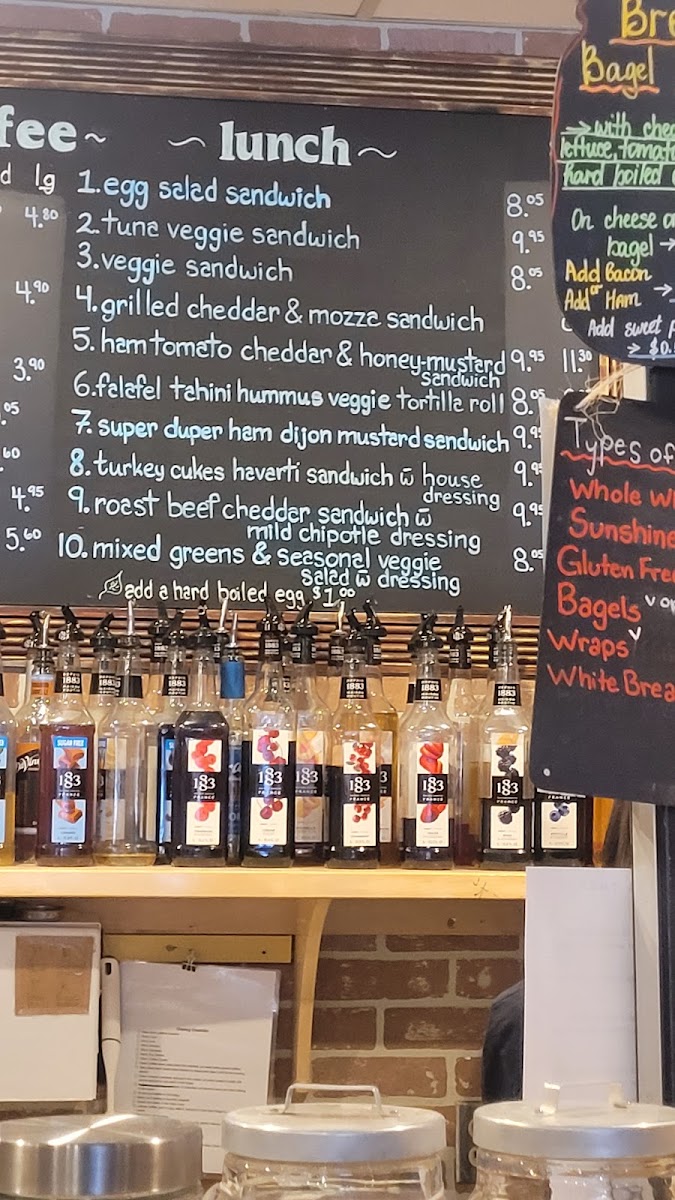 fee~
d lg
4.80
4.90
3.90
.05
.60
4.95
5.60
~ lunch ~
1. egg salad sandwich 8.05
2. tuna veggie sandwich 9.95
3. veggie sandwich 8.05
4. grilled cheddar & mozza sandwich
5. ham tomato cheddar & honey-mustard 9.95 11.30
sandwich
6. falafel tahini hummus veggie tortilla roll 8.05
7. super duper ham dijon mustard sandwich 9.95
8. turkey cukes havarti sandwich w̄ house 9.95
dressing
9. roast beef chedder sandwich w̄ 9.95
mild chipotle dressing
10. mixed greens & seasonal veggie 8.05
salad w̄ dressing
add a hard boiled egg $1.00
Bre
Bagel
→ with chee
lettuce, tomato
hard boiled
On cheese o
bagel →
Add Bacon
or
Add HAM →
Add sweet p
→ $0.
Types of
Whole w
Sunshine
Gluten Free
Bagels v or
Wraps v
White Brea
SUGAR FREE
1883
FRANCE
1883
FRANCE
1883
FRANCE
1883
1883
FRANCE
1883
FRANCE
1883
FRANCE